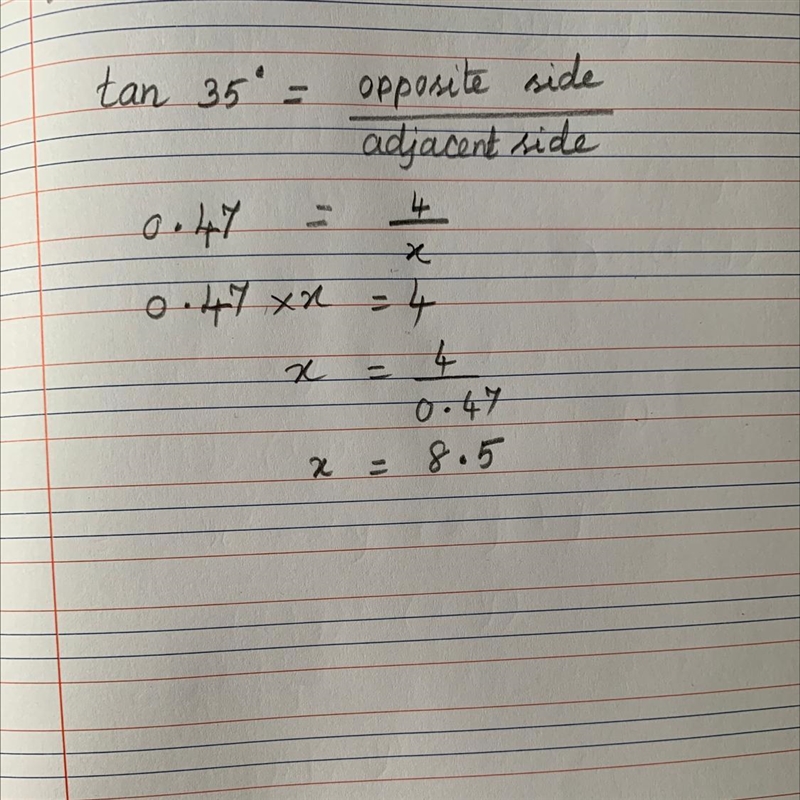 tan 35° = opposite side / adjacent side
0.47 = 4 / x
0.47 × x = 4
x = 4 / 0.47
x = 8.5